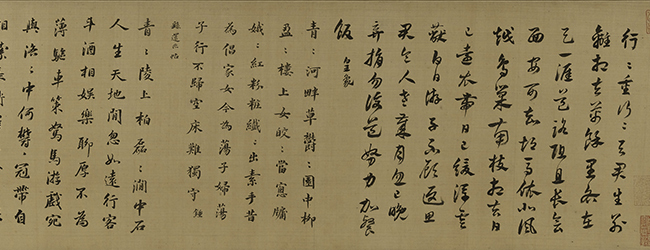 行〻重行〻与君生別
離相去萬餘里各在
天一涯道路阻且長會
面安可知胡馬依北風
越鳥巢南枝相去日
已遠衣帶日已緩浮雲
蔽白日游子不顧返思
君令人老歲月忽已晚
棄捐勿復道努力加餐
飯
青〻河畔草鬱〻園中柳
盈〻樓上女皎〻當窓牖
娥〻紅粉粧纖〻出素手昔
為倡家女今為蕩子婦蕩
子行不歸空床難獨守
青〻陵上柏磊〻澗中石
人生天地間忽如遠行客
斗酒相娛樂聊厚不為
薄驅車策駑馬游戲宛
與洛〻中何鬱〻冠帶自